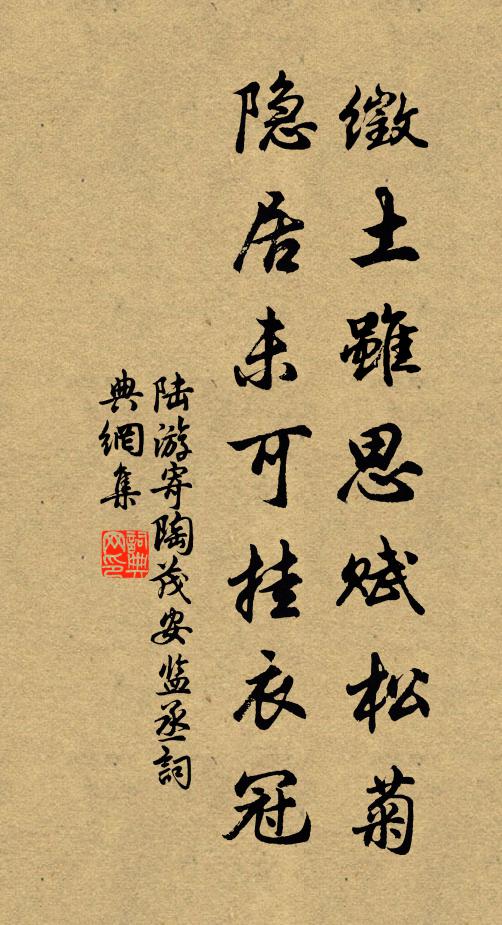 徵土雖思赋松菊
隐居未可挂衣冠
陆游寄陶茂安监丞詞
典網集
詞典
网印